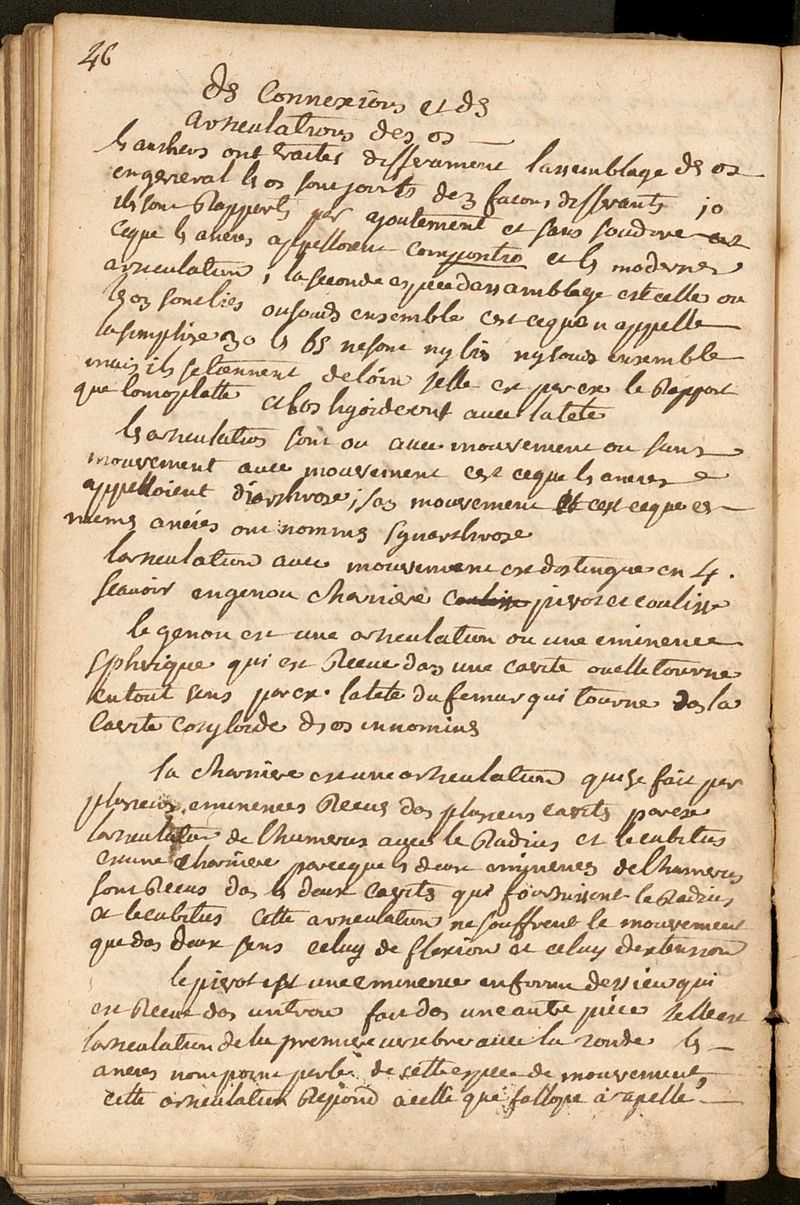 46
ds Connexions et ds
articulations des os
ls autheurs ont traites differament lassemblage ds os
en general ls os sont joints de 3 facons differants 1o
ils sont Rapportes par ajoutement et sans soudure est
ceque ls anciens appelloient et ls modernes
articulation, la seconde espece dassamblage est celle ou
ls os sont lies ou soudes ensemble cest cequon appelle
la simphise 3o ls os ne sont ny lies ny soudes ensemble
mais ils se tiennent de loin telle est par ex le Rapport
que lomoplatte et los hyoide ont avec la tete
ls articulations sont ou avec mouvement ou sans
mouvement avec mouvement cest ceque ls anciens
appelloient diarthrose; sas mouvement cest ceque ces
mems anciens ont nommes synarthrose
larticulation avec mouvement est distingue en 4.
scavoir en genou charniere coulisse pivot et coulisse
le genou est une articulation ou une eminence
spherique qui est Receue das une cavite ou elle tourne
en tout sens par ex. la tete du femur qui tourne das la
cavite cotyloide ds os innomines
la charniere est une articulation qui se fait par
plusieurs eminences Receus das plusieurs cavites par ex
larticulation de lhumerus avec le Radius et le cubitus
est une charniere parceque ls deux eminences de lhumerus
sont Receus das ls deux cavites qui fournissent le Radius
et le cubitus cette articulation ne souffrent le mouvement
que das deux sens celuy de flexion et celuy dextension
le pivot est une eminence en forme dessieu qui
est Receue das un trou fait das une autre piece telle est
larticulation de la premiere vertebre avec la 2onde ls
anciens nont point parle de cette espece de mouvement,
cette articulation Repond a celle que fallope a apelle